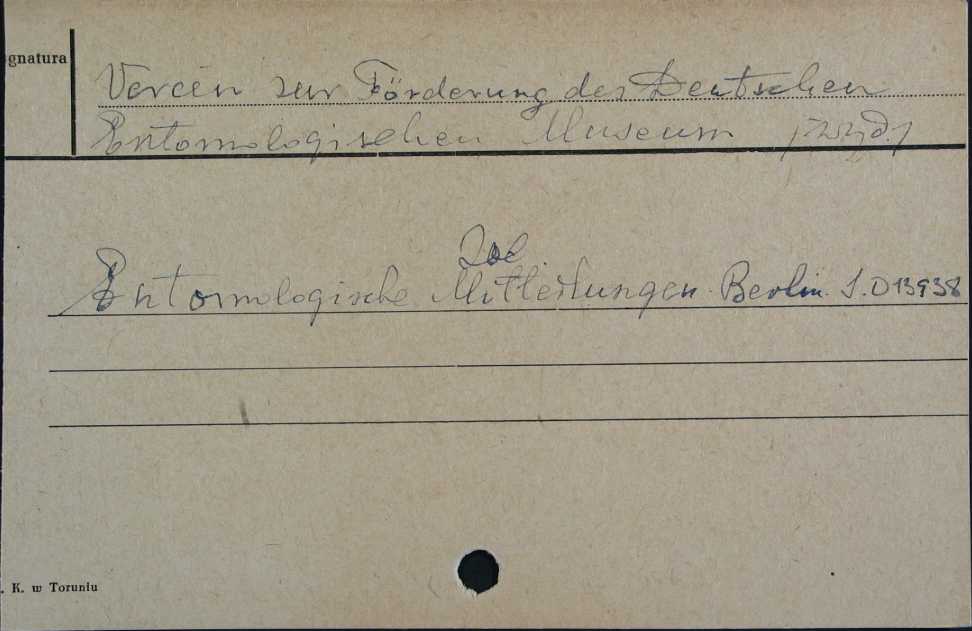 ignatura
Verein zur Förderung des Deutschen
Entomologischen Museum /wyd./
Zob
Entomologische Mitteilungen. Berlin. S.013938
. K. w Toruniu